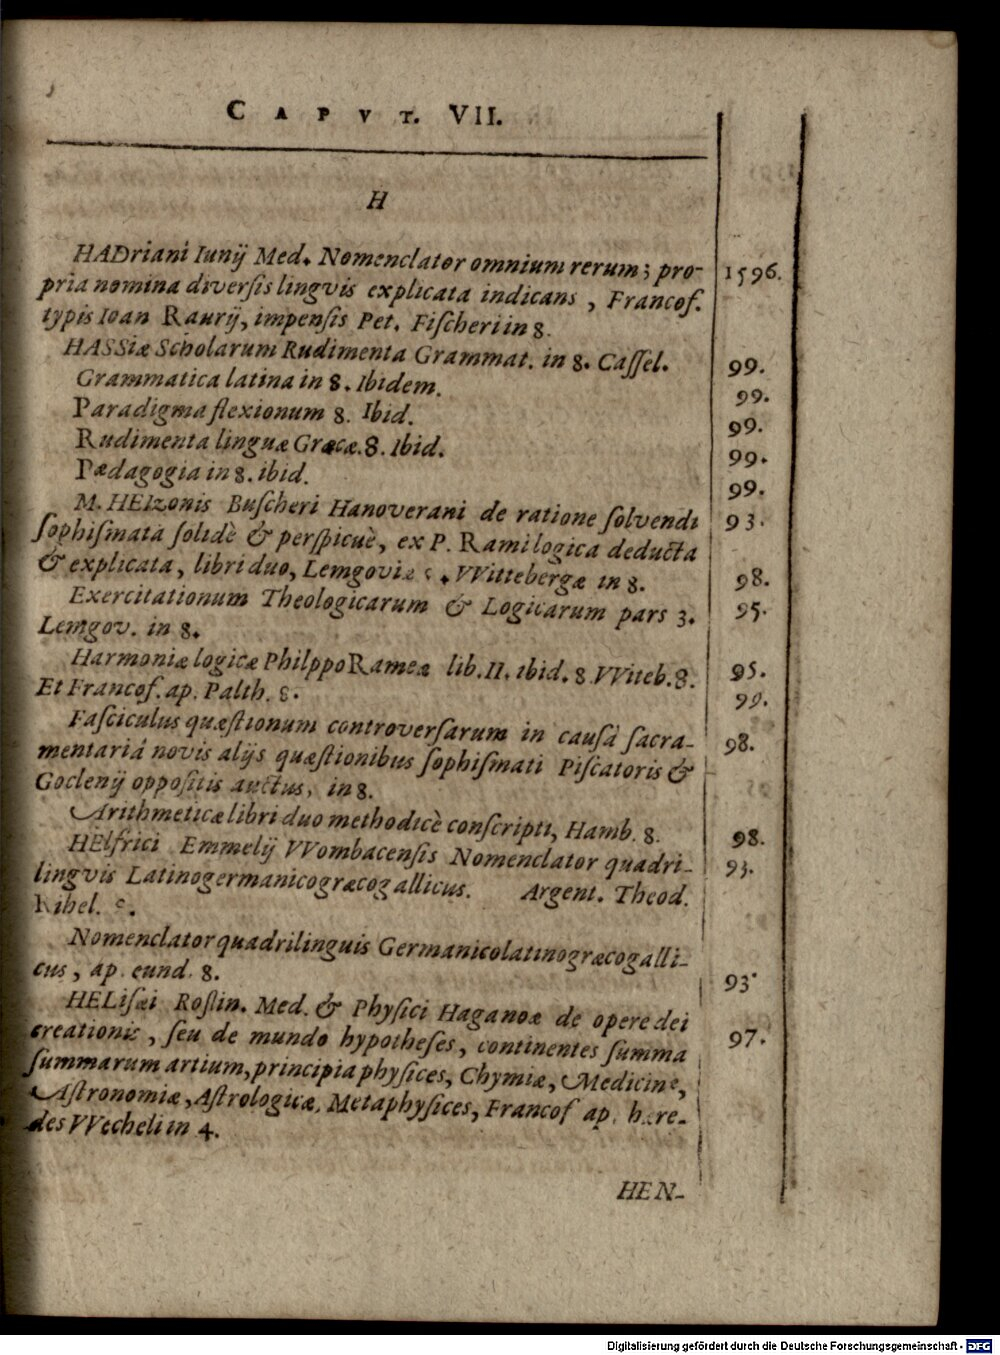 CAPVT. VII.
H
HADriani Iunij Med. Nomenclator omnium rerum; pro- 1596.
pria nomina diverſis lingvis explicata indicans, Francof.
typis Ioan Raurij, impenſis Pet. Fiſcheri in 8.
HASSiæ Scholarum Rudimenta Grammat. in 8. Caſſel. 99.
Grammatica latina in 8. Ibidem. 99.
Paradigma flexionum 8. Ibid. 99.
Rudimenta linguæ Græcæ. 8. Ibid. 99.
Pædagogia in 8. ibid. 99.
M. HEIzonis Buſcheri Hanoverani de ratione ſolvendi 93.
ſophiſmata ſolidè & perſpicuè, ex P. Rami logica deducta
& explicata, libri duo, Lemgoviæ VVittebergæ in 8. 98.
Exercitationum Theologicarum & Logicarum pars 3. 95.
Lemgov. in 8.
Harmoniæ logicæ Philppo Rameæ lib. II. ibid. 8. VViteb. 8. 95.
Et Francof. ap. Palth. 8. 99.
Faſciculus quæſtionum controverſarum in cauſâ ſacra- 98.
mentariâ novis alijs quæſtionibus ſophiſmati Piſcatoris &
Goclenij oppoſitis auctus, in 8.
Arithmeticæ libri duo methodicè conſcripti, Hamb. 8. 98.
HElfrici Emmelij VVombacenſis Nomenclator quadri- 93.
lingvis Latinogermanicogræcogallicus. Argent. Theod.
Rihel.
Nomenclator quadrilinguis Germanicolatinogræcogalli-
cus, ap. eund. 8. 93.
HELiſæi Roſlin. Med. & Phyſici Haganoæ de opere dei
creationis, ſeu de mundo hypotheſes, continentes ſumma 97.
ſummarum artium, principia phyſices, Chymiæ, Medicinæ,
Aſtronomiæ, Aſtrologicæ, Metaphyſices, Francof ap. hære-
des VVecheli in 4.
HEN-
Digitalisierung gefördert durch die Deutsche Forschungsgemeinschaft - DFG